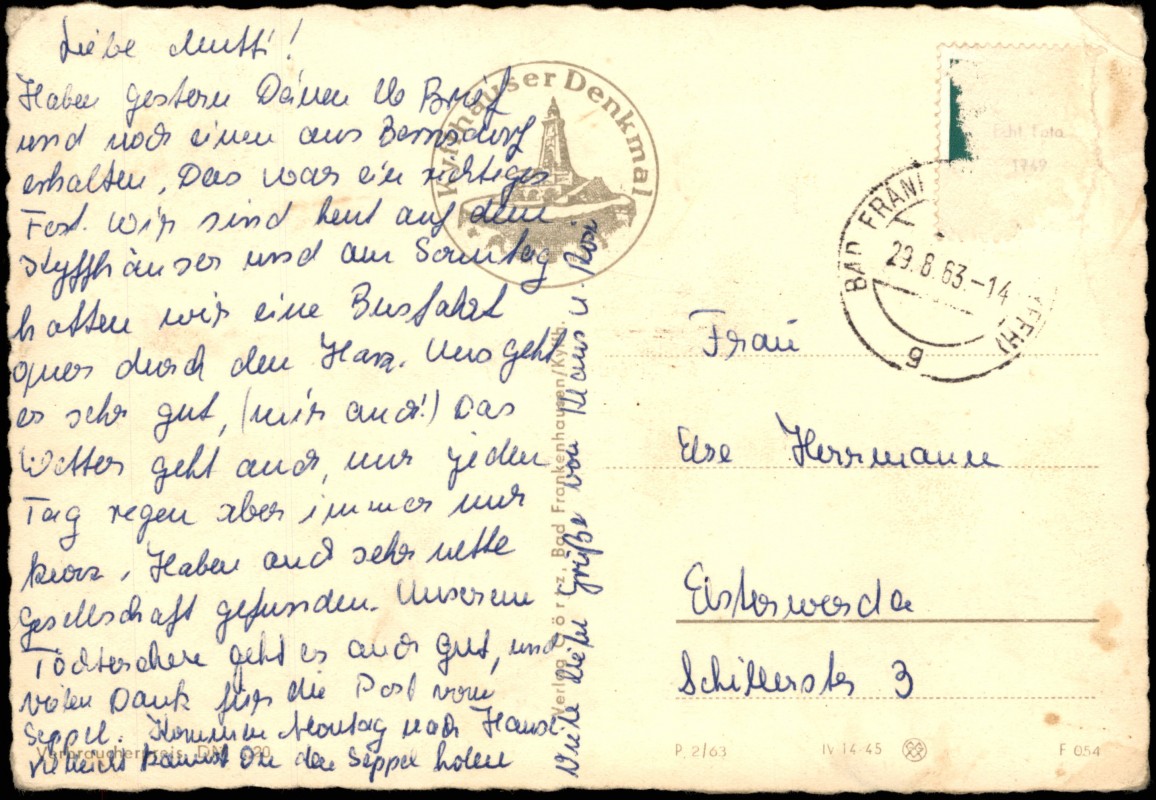 Liebe Mutti!
Haben gestern Deinen lb Brief
und noch einen aus Bernsdorf
erhalten. Das war ein richtiges
Fest. Wir sind heut auf dem
Kyffhäuser und am Sonntag
hatten wir eine Busfahrt
quer durch den Harz. Uns geht
es sehr gut, (mir auch!) Das
Wetter geht auch, nur jeden
Tag regen aber immer nur
kurz. Haben auch sehr nette
Gesellschaft gefunden. Unserem
geht es auch gut, und
vielen Dank für die Post vom
Seppel. Kommen Montag nach Hause
vielleicht kannst Du den Seppel holen
Viele liebe Grüße von Klaus u. Rosi
Kyffhäuser Denkmal
Verlag Görtz, Bad Frankenhausen/Kyffh.
Verbraucherpreis DM 0,20
Echt Foto
1749
BAD FRANK
29.8.63.-14
(KYFFH)
g
Frau
Else Herrmann
Elsterwerda
Schillerstr 3
P. 2/63
IV 14-45
F 054